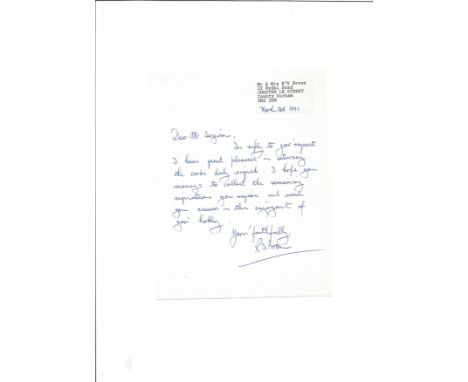 Mr & Mrs R S Brown
22 Rydal Road
CHESTER LE STREET
County Durham
DH2
March 1991
Dear Mr
In reply to your request
I have great pleasure in returning
the cards duly signed. I hope you
manage to collect the remaining
signatures you require and wish
you success in the enjoyment of
your hobby.
Yours faithfully,
R S Brown